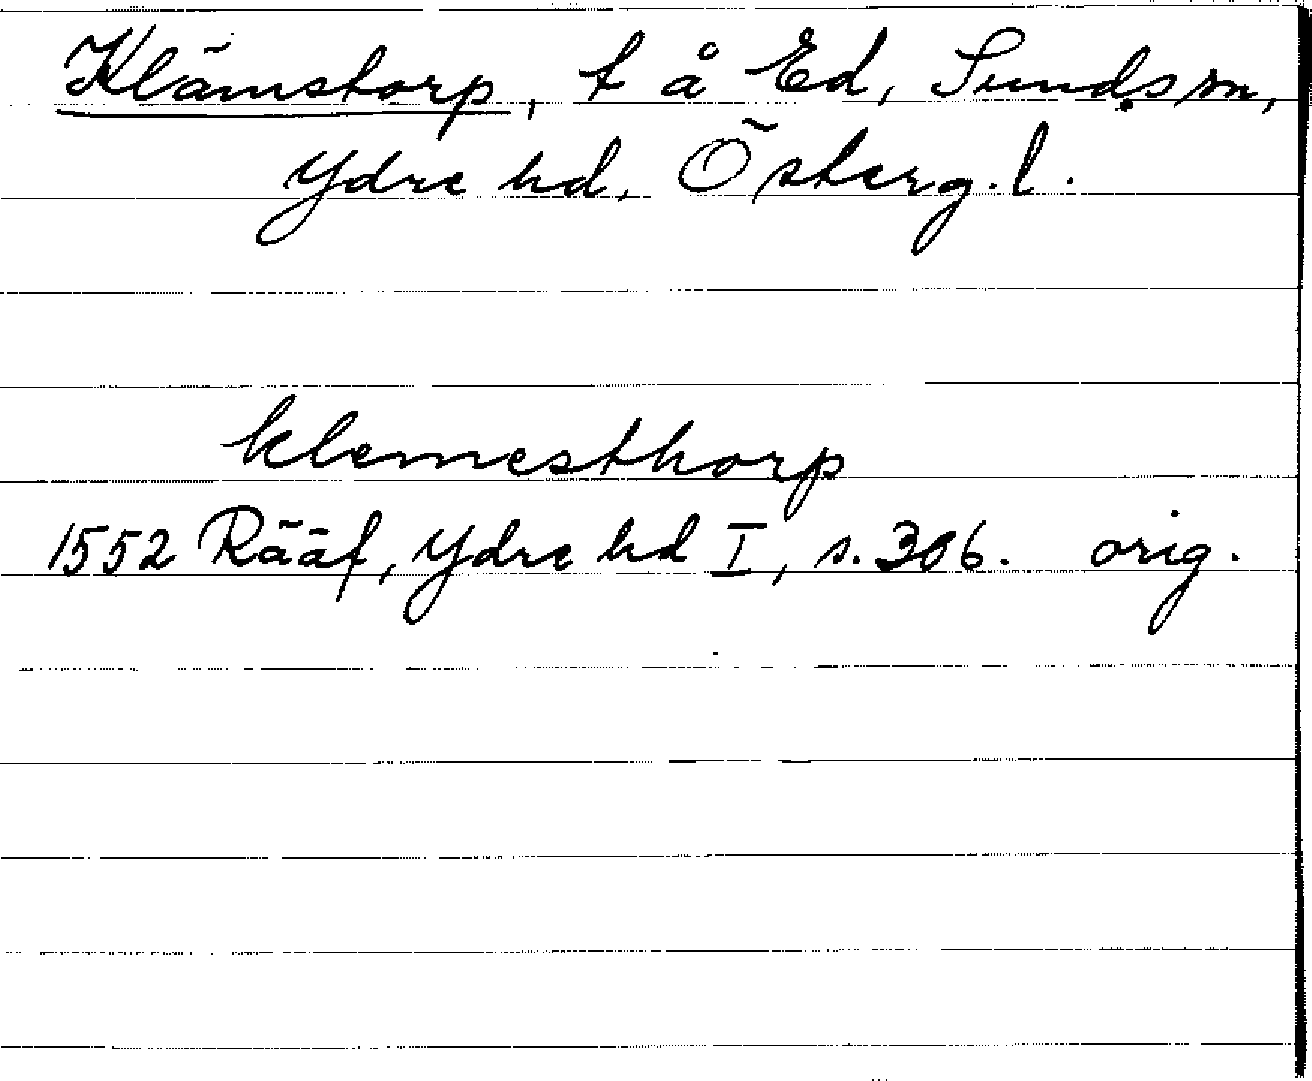 Klämstorp, t å Ed, Sunds sn,
Ydre hd, Österg. l.
klemesthorp
1552 Rääf, Ydre hd I, s. 306. orig.